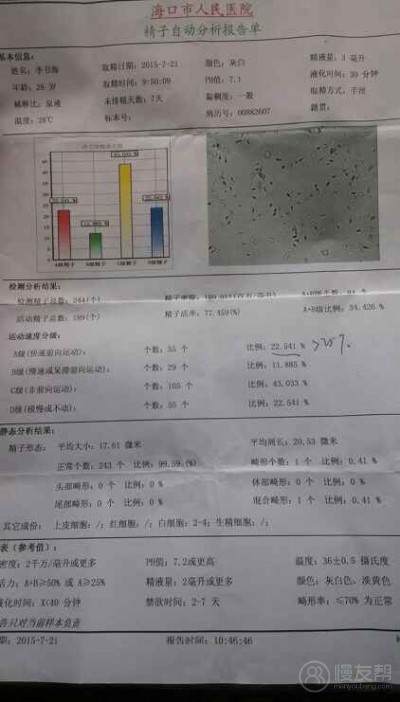 海口市人民医院
精子自动分析报告单
基本信息:
取精日期: 2015-7-21 颜色: 灰白 精液量: 3 毫升
年龄: 28 岁 取精时间: 9:50:09 PH值: 7.1 液化时间: 30 分钟
稀释比: 原液 未排精天数: 7天 黏稠度: 一般 取精方式: 手淫
温度: 28℃ 标本号: 病历号: 00882607 籍贯:
A级精子 B级精子 C级精子 D级精子
检测分析结果:
检测精子总数: 244(个)
活动精子总数: 189(个) 精子活率: 77.459(%) A+B级比例: 34.426
运动速度分级:
A级(快速前向运动): 个数: 55 个 比例: 22.541 % >25%
B级(慢速或呆滞前向运动): 个数: 29 个 比例: 11.885%
C级(非前向运动): 个数: 105 个 比例: 43.033 %
D级(极慢或不动): 个数: 55 个 比例: 22.541 %
静态分析结果:
精子形态: 平均大小: 17.61 微米 平均周长: 20.53 微米
正常个数: 243 个 比例: 99.59(%) 畸形个数: 1 个 比例: 0.41 %
头部畸形: 0 个 比例: 0 % 体部畸形: 0 个 比例: 0 %
尾部畸形: 0 个 比例: 0 % 混合畸形: 1 个 比例: 0.41 %
其它成份: 上皮细胞: /; 红细胞: /; 白细胞: 2-4; 生精细胞: /;
表(参考值):
密度: 2千万/毫升或更多 PH值: 7.2或更高 温度: 36±0.5 摄氏度
活力: A+B≥50% 或 A≥25% 精液量: 2毫升或更多 颜色: 灰白色、淡黄色
液化时间: X<40 分钟 禁欲时间: 2-7 天 畸形率: ≤70% 为正常
告只对当前样本负责
期: 2015-7-21 报告时间: 10:46:46
慢友帮
manyoubang.com